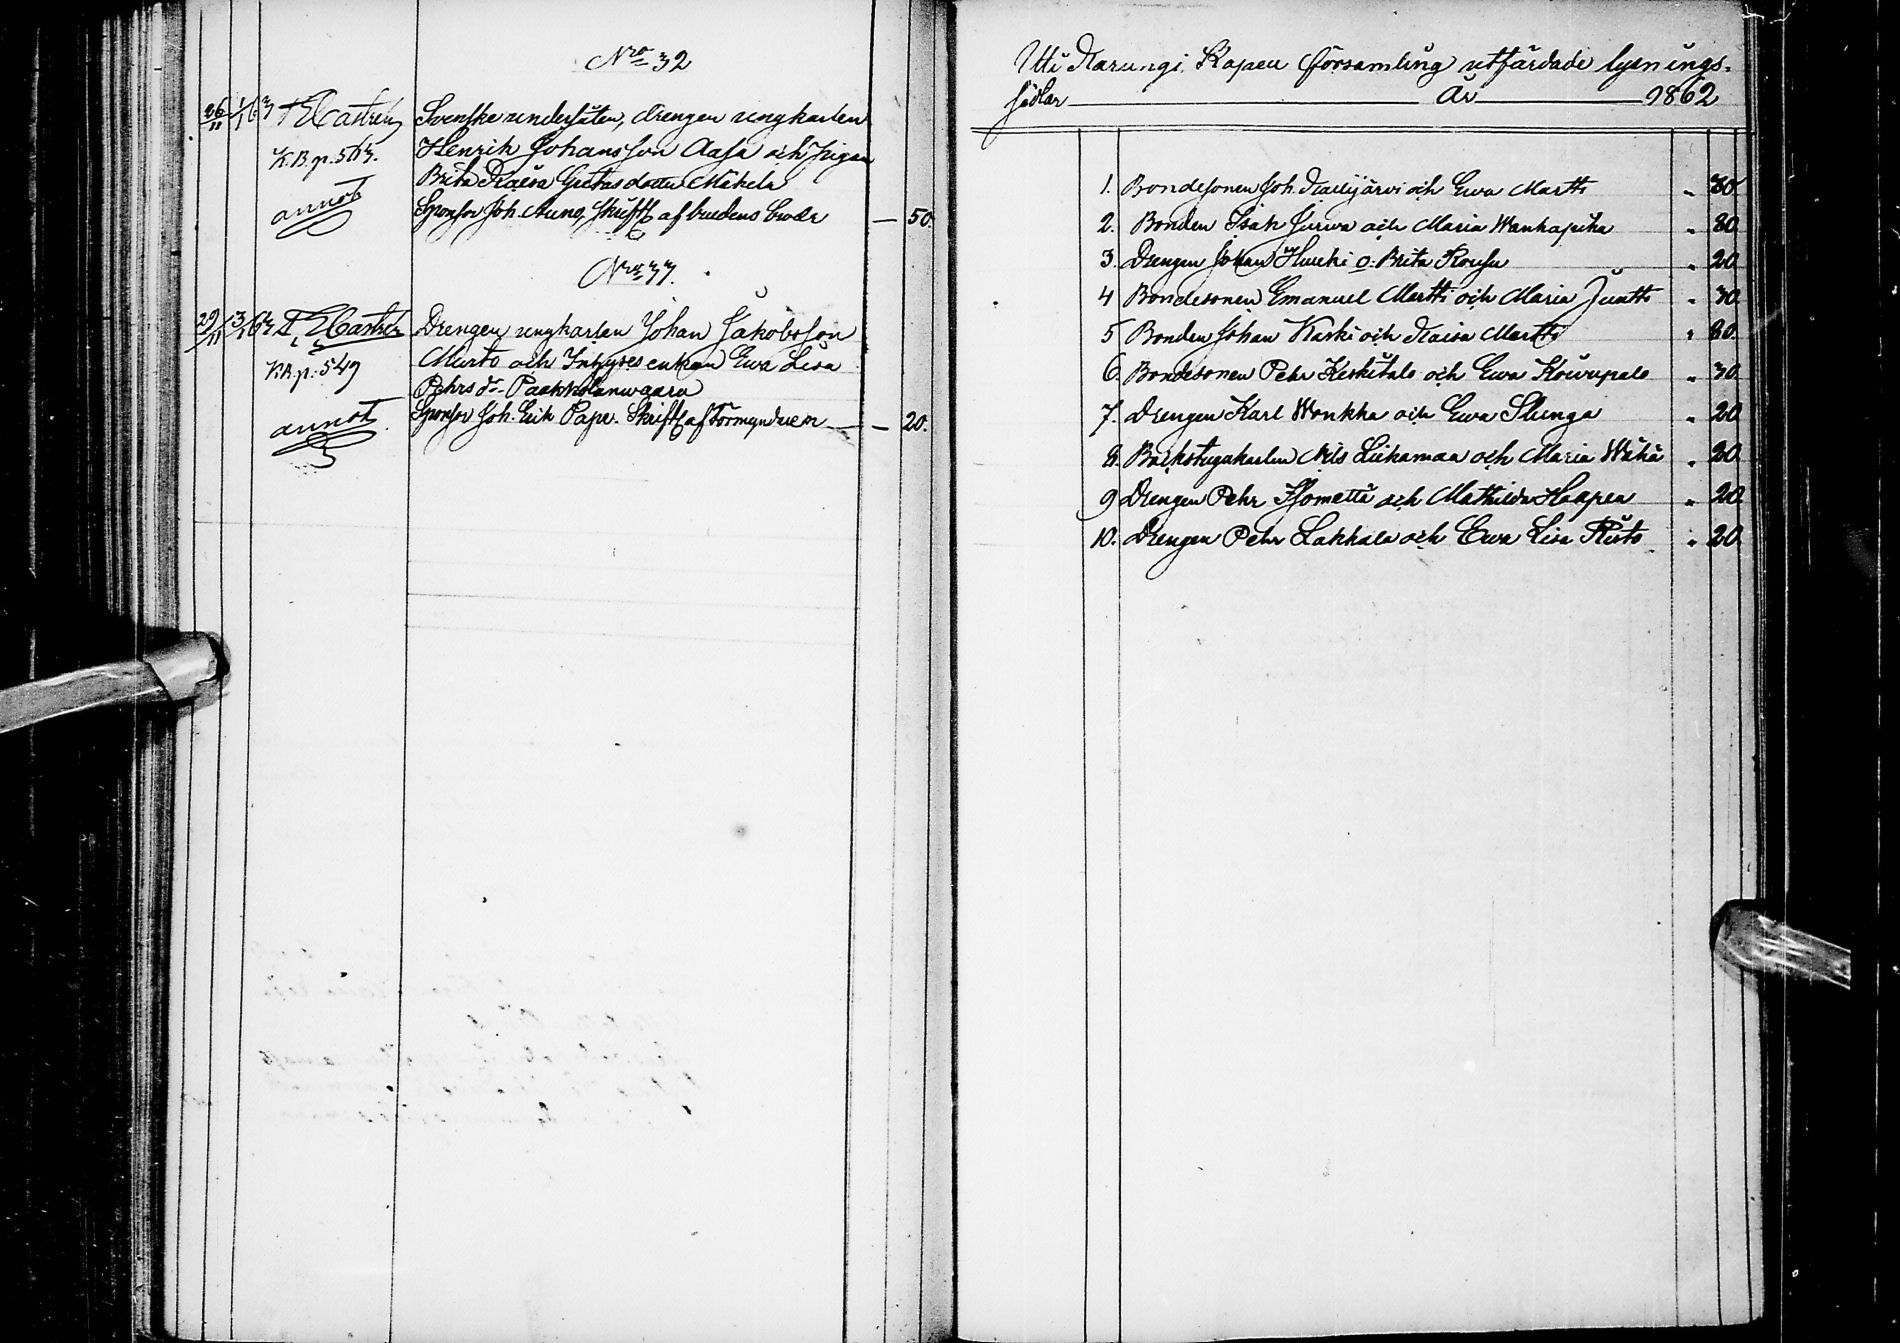 Nro 32
26/11 1/1 63 Castrén Svenske undersåten, drengen ungkarlen
K.B. p. 563. Henrik Johansson Aasa och pigan
Brita Kaisa Gretas dotter Mäkelä
annot Sponsor Joh. Auno, skriftl af brudens broder — 50.
Nro 33.
29/11 13/1 63 Castrén Drengen ungkarlen Johan Jakobsson
Murto och Inhyses enkan Ewa Lisa
KB p: 549 Pehrs dr Paakkolanwaara
annot Sponsor Joh. Erik Pape. Skriftl af Förmyndaren — 20.
Uti Karungi Kapell församling utfärdade lysnings-
sedlar År 1862
1. Bondesonen Joh. Kailijärvi och Ewa Martti " 30
2. Bonden Isak Jurwa och Maria Wanhapiha " 80
3. Drengen Johan Hurki o. Brita Kousu " 20
4 Bondesonen Emanuel Martti och Maria Juntti " 30
5 Bonden Johan Karki och Kaisa Martti " 80
6. Bondesonen Pehr Keskitalo och Ewa Koivupalo " 30
7. Drengen Karl Wonkka och Ewa Slunga " 20
8. Backstugukarlen Nils Liekamaa och Maria Wähä " 20
9 Drengen Pehr Isometsä och Mathilda Haapea " 20
10. Drengen Pehr Lakkala och Ewa Lisa Risto " 20